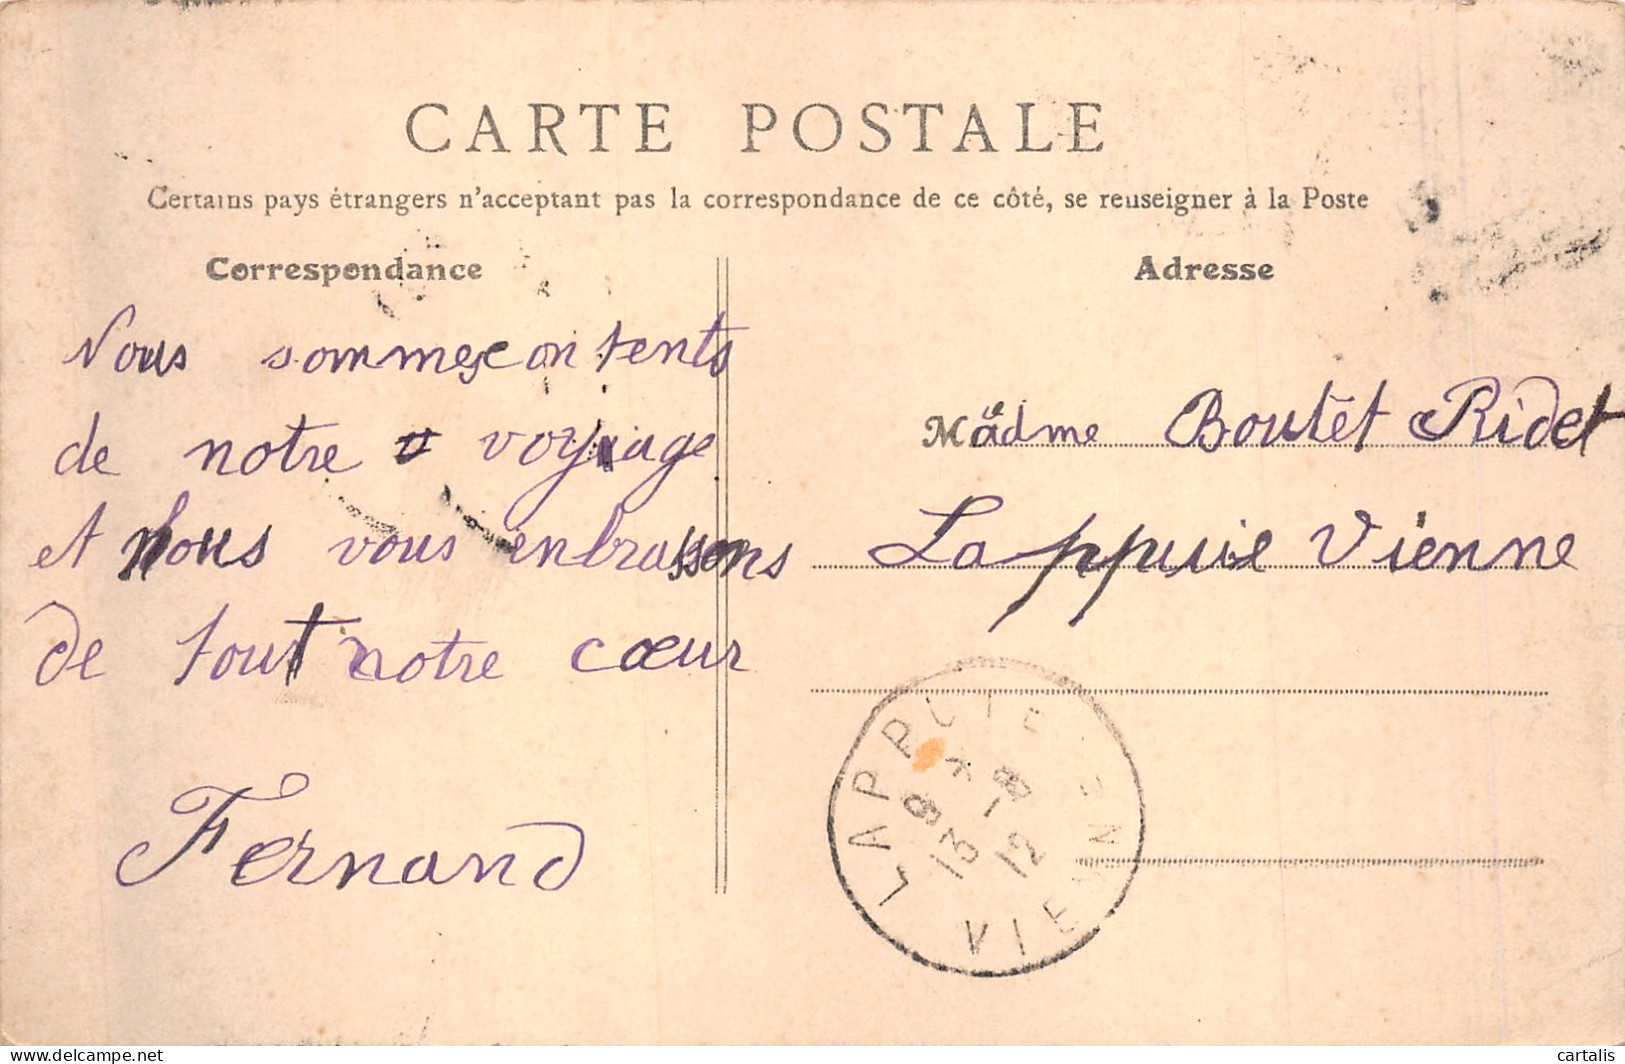 CARTE POSTALE
Certains pays étrangers n'acceptant pas la correspondance de ce côté, se renseigner à la Poste
Correspondance
Adresse
Nous sommes contents
de notre voyage
et nous vous enbrassons
de tout notre cœur
Fernand
Madme Boutet Ridet
Lappuie Vienne
LAPPUYE
8 -8
13 12
VIENNE
www.delcampe.net
cartalis